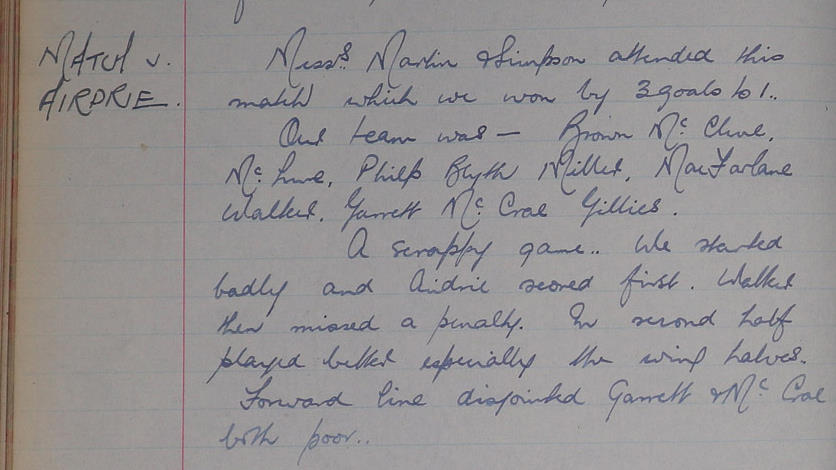 MATCH v.
AIRDRIE.
Messrs. Martin & Simpson attended this
match which we won by 3 goals to 1..
Our team was — Brown Mc Clure,
Mc Lure, Philp Blyth Miller, MacFarlane
Walker, Garrett Mc Crae Gillies.
A scrappy game.. We started
badly and Airdrie scored first. Walker
then missed a penalty. In second half
played better especially the wing halves.
Forward line disjointed Garrett & Mc Crae
both poor..